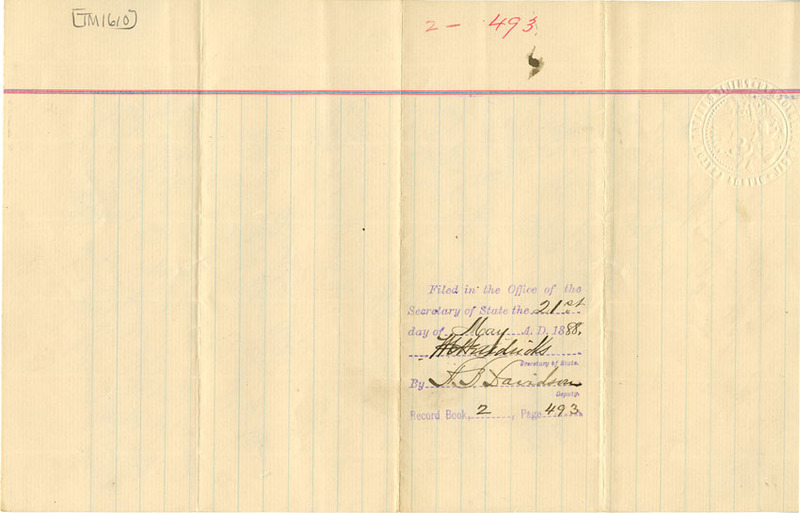 [TM1610]
2 - 493
Filed in the Office of the
Secretary of State the 21st
day of May A. D. 1888,
Hendricks
Secretary of State.
By Davidson
Deputy.
Record Book, 2, Page 493